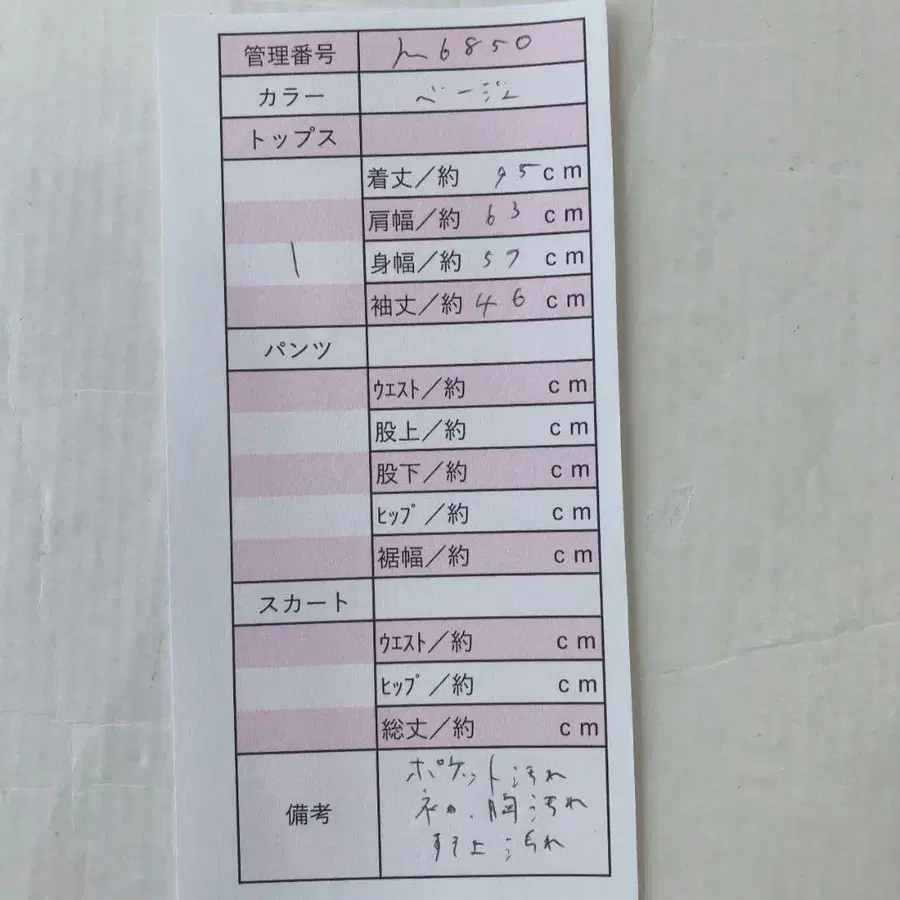 管理番号 m6850
カラー ベージュ
トップス
着丈／約 95 cm
肩幅／約 63 cm
身幅／約 57 cm
袖丈／約 46 cm
パンツ
ｳｴｽﾄ／約 cm
股上／約 cm
股下／約 cm
ﾋｯﾌﾟ／約 cm
裾幅／約 cm
スカート
ｳｴｽﾄ／約 cm
ﾋｯﾌﾟ／約 cm
総丈／約 cm
備考
ポケット汚れ
胸汚れ
汚れ